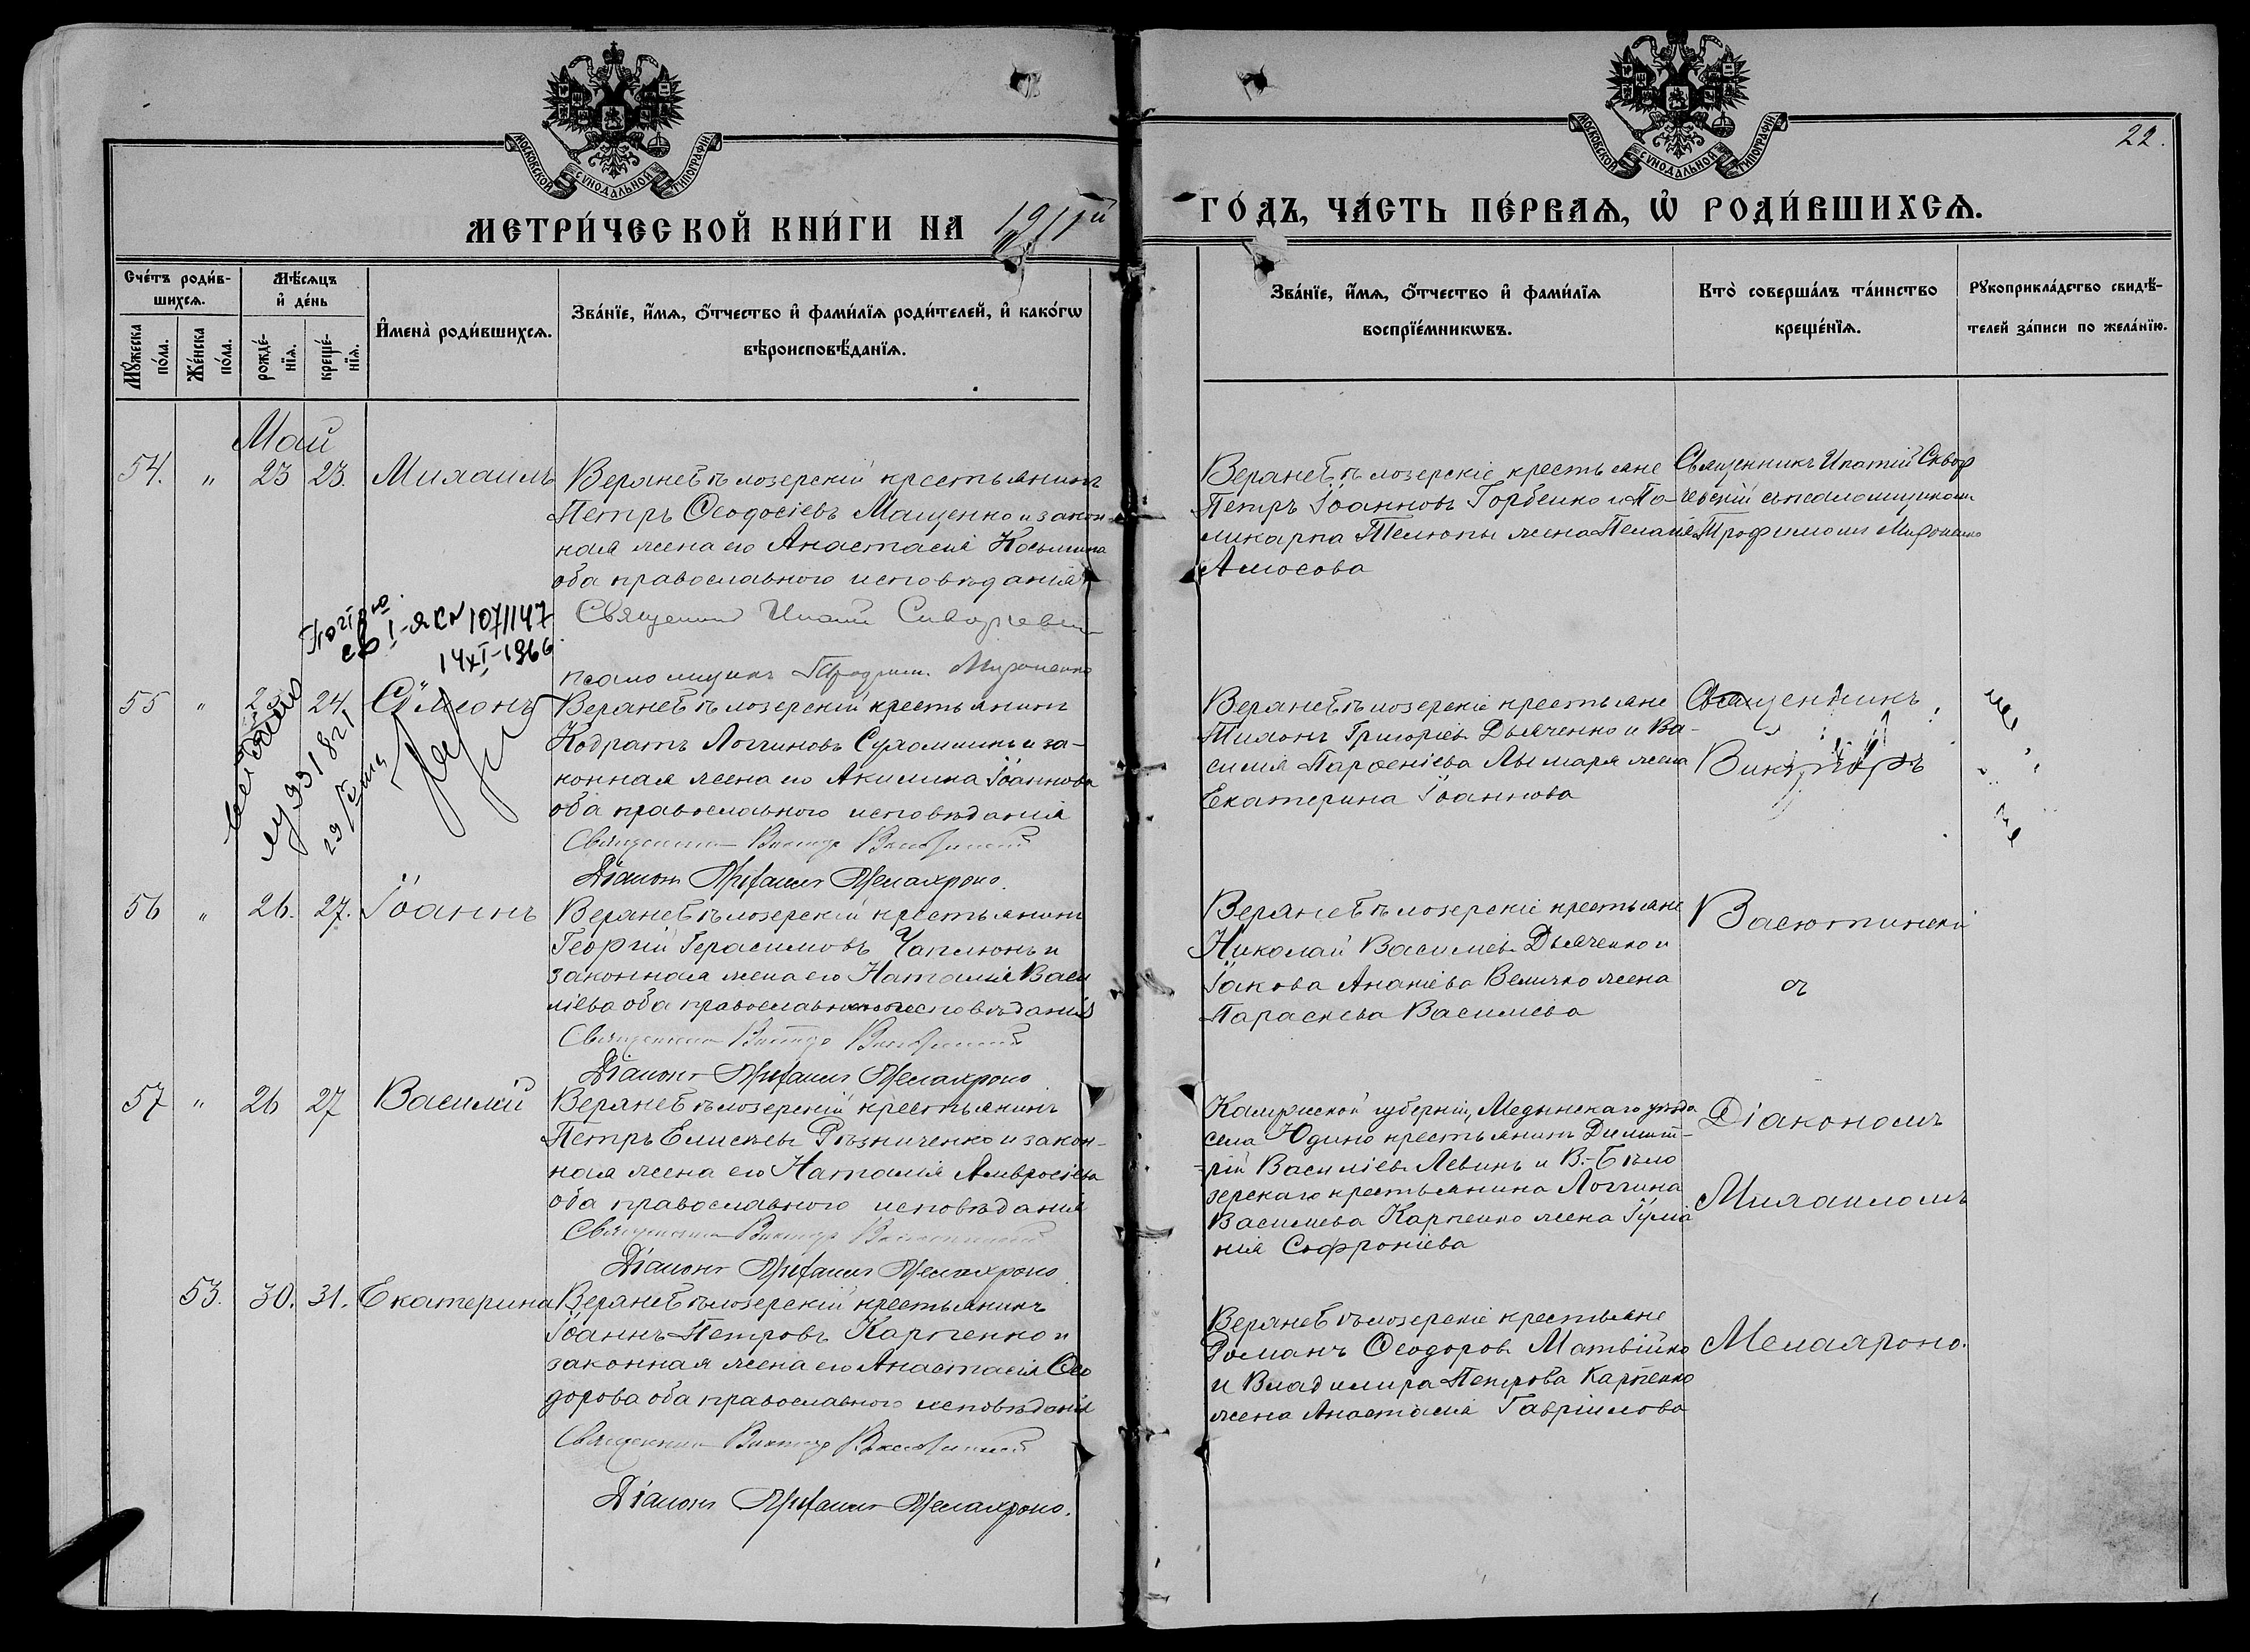 22.
МОСКОВСКОЙ СУНОДАЛЬНОЙ ТИПОГРАФІИ
МОСКОВСКОЙ СУНОДАЛЬНОЙ ТИПОГРАФІИ
МЕТРИ́ЧЕСКОЙ КНИ́ГИ НА 1911й ГО́ДЪ, ЧА́СТЬ ПЕ́РВАѦ, Ѡ҆ РОДИ́ВШИХСѦ.
Сче́тъ роди́в-
шихсѧ.
Мѣ́сѧцъ
и҆ де́нь
Мꙋ́жеска
по́ла.
Же́нска
по́ла.
рожде́-
нїѧ.
креще́-
нїѧ.
И҆мена̀ роди́вшихсѧ.
Зва́нїе, и҆́мѧ, ѻ҆́тчество и҆ фами́лїѧ роди́телей, и҆ како́гѡ
вѣроисповѣ́данїѧ.
Зва́нїе, и҆́мѧ, ѻ҆́тчество и҆ фами́лїѧ
воспрїе́мникѡвъ.
Кто̀ соверша́лъ та́инство
креще́нїѧ.
Рꙋкоприкла́дство свидѣ́-
телей за́писи по жела́нїю.
Май
54. " 23 23. Михаилъ
Верхнебѣлозерскій крестьянинъ
Петръ Ѳеодосіевъ Мащенко и закон-
ная жена его Анастасія Косьмина
оба православнаго исповѣданія
Священникъ Ипатій Скворчевскій
псаломщикъ Трофимъ Мироненко
Верхнебѣлозерскіе крестьяне
Петръ Іоанновъ Горбенко и По-
ликарпа Телюпы жена Пелагія
Амосова
Священникъ Ипатій Сквор
чевскій съ псаломщикомъ
Трофимомъ Мироненко
Повторно
св I-ЯК № 107147
14 XI-1966
55 " 24. Сѵмеонъ
Верхнебѣлозерскій крестьянинъ
Кодратъ Логгиновъ Сухомлинъ и за-
конная жена его Акилина Іоаннова
оба православнаго исповѣданія
Священникъ Викторъ Васютинскій
Діаконъ Михаилъ Мелахроно.
Верхнебѣлозерскіе крестьяне
Тихонъ Григоріевъ Дьяченко и Ва-
силія Парѳеніева Лымаря жена
Екатерина Іоаннова
Священникъ
Викторъ
56 " 26. 27. Іоаннъ
Верхнебѣлозерскій крестьянинъ
Георгій Герасимовъ Чаплюнъ и
законная жена его Наталія Васи
ліева оба православнаго исповѣданія
Священникъ Викторъ Васютинскій
Діаконъ Михаилъ Мелахроно
Верхнебѣлозерскіе крестьяне
Николай Василіевъ Дьяченко и
Іакова Ананіева Величко жена
Параскева Василіева
Васютинскій
съ
57 " 26 27 Василій
Верхнебѣлозерскій крестьянинъ
Петръ Елисѣевъ Рѣзниченко и закон-
ная жена его Наталія Амвросіева
оба православнаго исповѣданія
Священникъ Викторъ Васютинскій
Діаконъ Михаилъ Мелахроно
Калужской губерніи, Медынскаго уѣзда
села Юдино крестьянинъ Димит-
рій Василіевъ Левинъ и В.-Бѣло
зерскаго крестьянина Логгина
Василіева Карпенко жена Іуліа
нія Софроніева
Діакономъ
Михаиломъ
53. 30. 31. Екатерина
Верхнебѣлозерскій крестьянинъ
Іоаннъ Петровъ Карпенко и
законная жена его Анастасія Ѳео
дорова оба православнаго исповѣданія
Священникъ Викторъ Васютинскій
Діаконъ Михаилъ Мелахроно.
Верхнебѣлозерскіе крестьяне
Романъ Ѳеодоровъ Матвійко
и Владиміра Петрова Карпенко
жена Анастасія Гавріилова
Мелахроно.